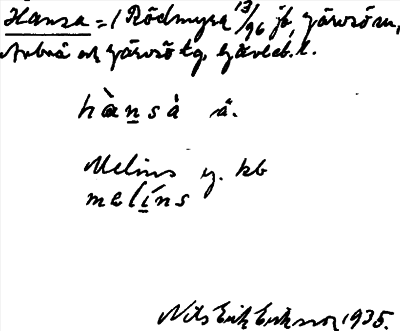 Hansa = 1 Rödmyra 13/96 jb, Järvsö sn,
Arbrå och Järvsö tg, Gävleb. l.
hànsà å.
Melins g. kb
melíns
Nils Erik Eriksson 1935.